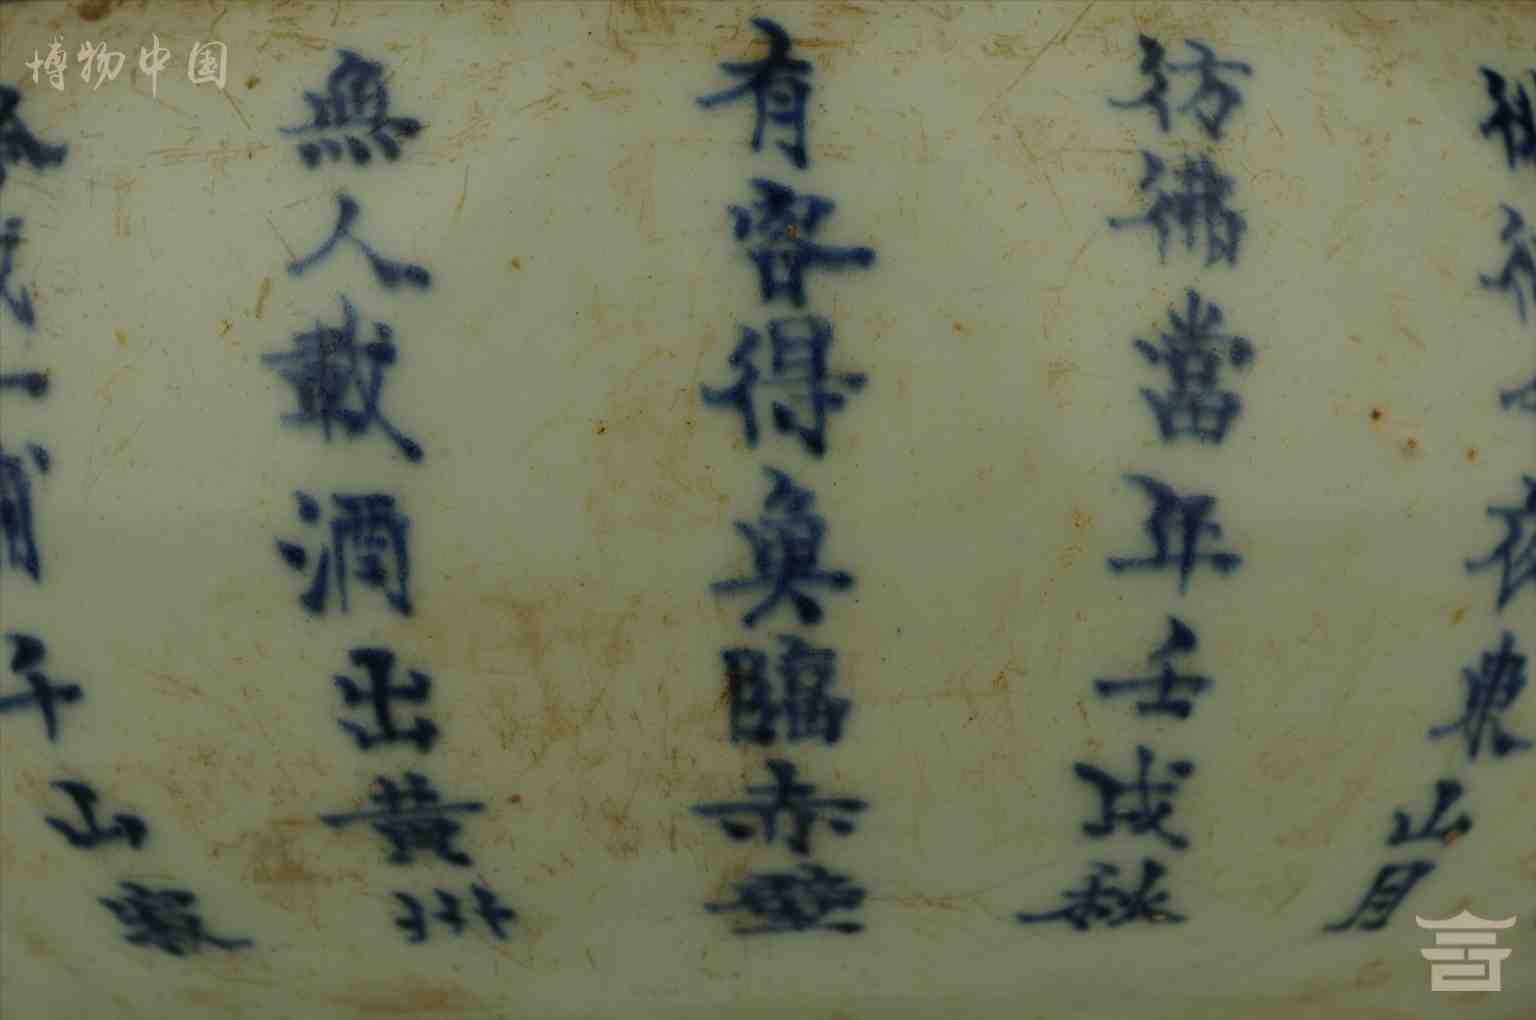 博物中国
夜東山月
彷彿當年壬戌秋
有客得魚臨赤壁
無人載酒出黃州
一
千山寂